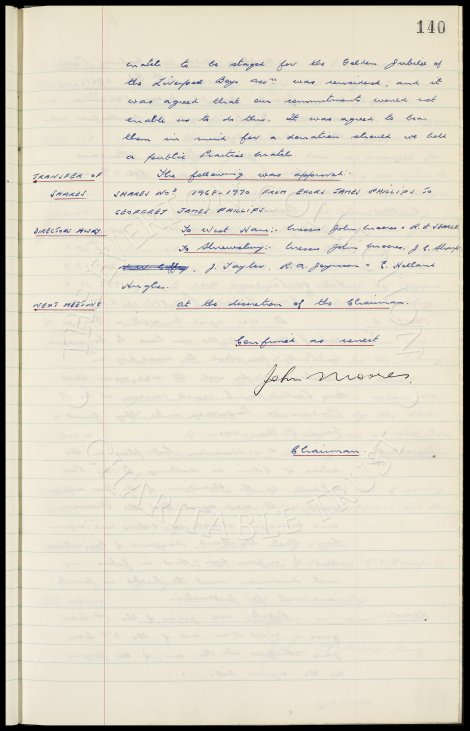 140
match to be staged for the Golden Jubilee of
the Liverpool Boys Assn was considered, and it
was agreed that our commitments would not
enable us to do this. It was agreed to bear
them in mind for a donation should we hold
a public Practice Match.
TRANSFER OF SHARES. The following was approved.
SHARES Nos 1968-1970 FROM EXORS JAMES PHILLIPS TO
GEOFFREY JAMES PHILLIPS.
DIRECTORS AWAY. To West Ham:- Messrs John Moores & R. R. SEARLE
To Shrewsbury:- Messrs John Moores, J. C. Sharp
J. Taylor, R. A. Joynson & E. Holland
Hughes.
NEXT MEETING at the discretion of the Chairman.
Confirmed as correct
John Moores.
Chairman.
THE EVERTON COLLECTION
CHARITABLE TRUST